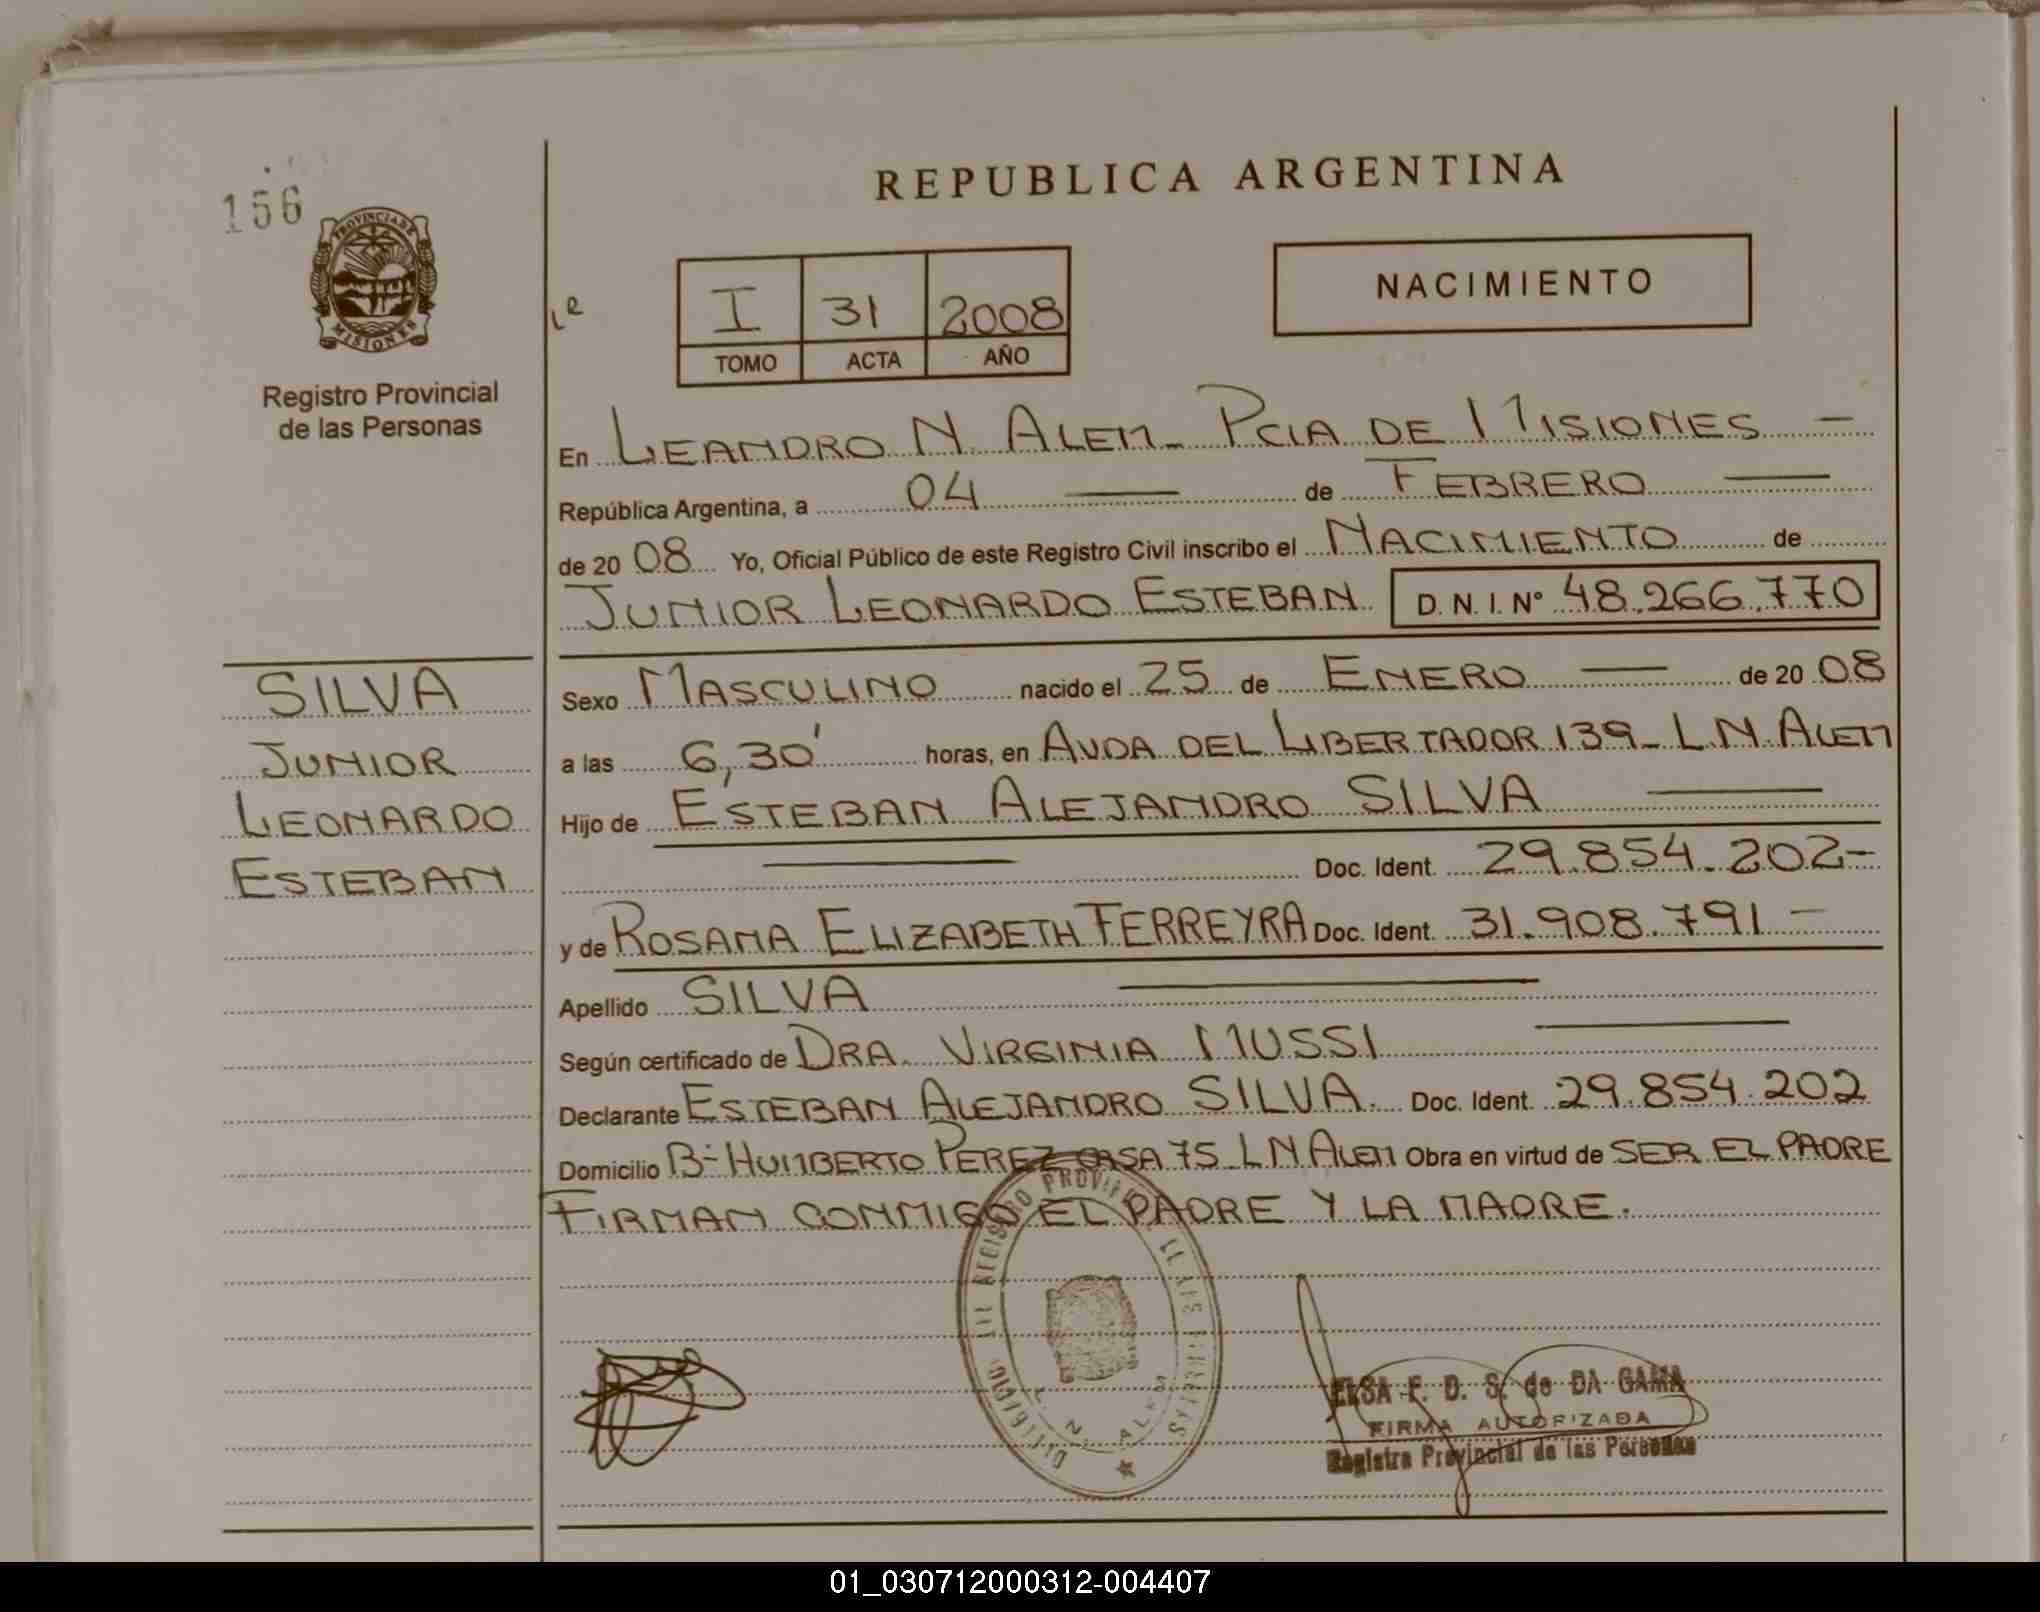 156
PROVINCIA DE
MISIONES
Registro Provincial
de las Personas
SILVA
JUNIOR
LEONARDO
ESTEBAN
REPUBLICA ARGENTINA
I 31 2008
TOMO ACTA AÑO
NACIMIENTO
En LEANDRO N. ALEM - PCIA DE MISIONES -
República Argentina, a 04 — de FEBRERO —
de 20 08 Yo, Oficial Público de este Registro Civil inscribo el NACIMIENTO de
JUNIOR LEONARDO ESTEBAN D. N. I. Nº 48.266.770
Sexo MASCULINO nacido el 25 de ENERO — de 20 08
a las 6,30' horas, en AVDA DEL LIBERTADOR 139 - L.N. ALEM
Hijo de ESTEBAN ALEJANDRO SILVA —
— Doc. Ident. 29.854.202-
y de ROSANA ELIZABETH FERREYRA Doc. Ident. 31.908.791 -
Apellido SILVA —
Según certificado de DRA. VIRGINIA MUSSI —
Declarante ESTEBAN ALEJANDRO SILVA. Doc. Ident. 29.854.202
Domicilio Bº HUMBERTO PEREZ CASA 75 L N ALEM Obra en virtud de SER EL PADRE
FIRMAN CONMIGO EL PADRE Y LA MADRE.
L. N. ALEM
ELSA F. D. S. de DA GAMA
FIRMA AUTORIZADA
Registro Provincial de las Personas
01_030712000312-004407